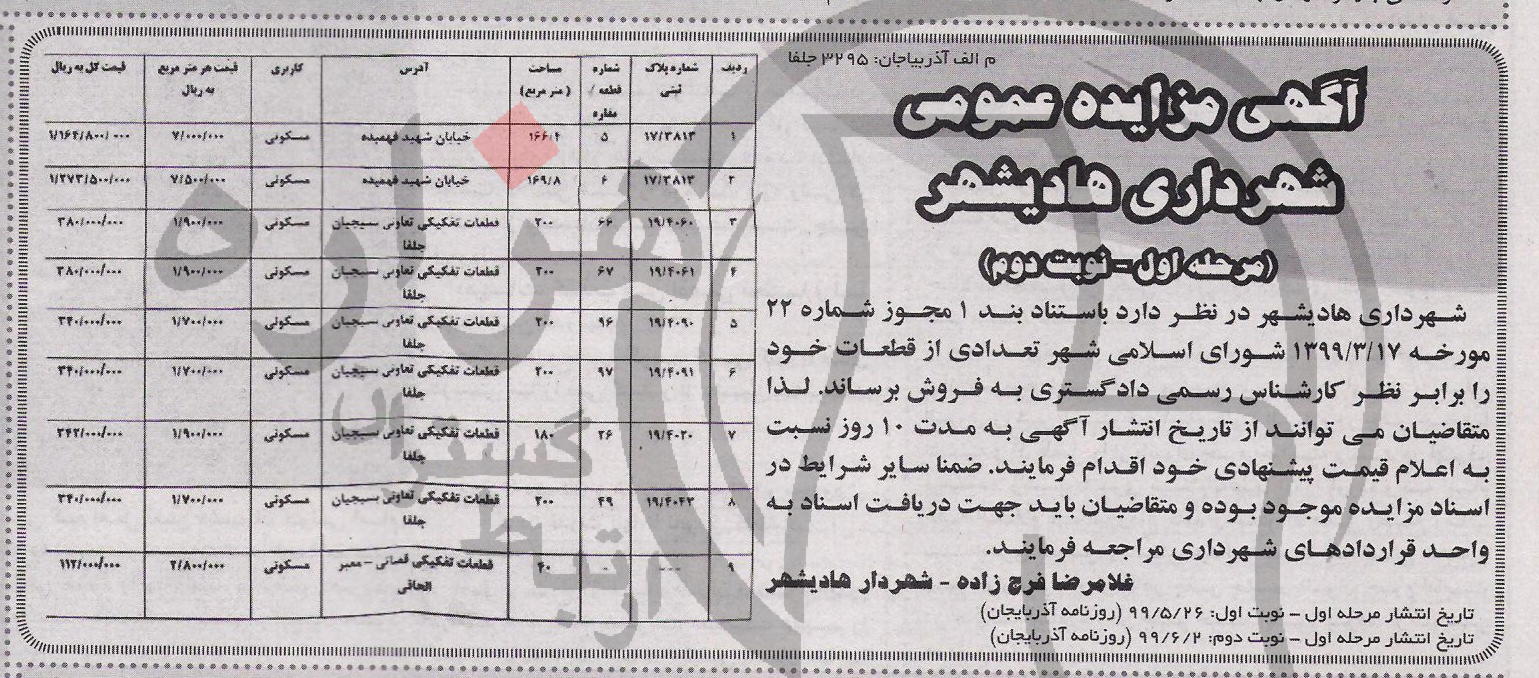 م الف آذربیاجان: ۳۲۹۵ جلفا
آگهی مزایده عمومی
شهرداری هادیشهر
(مرحله اول - نوبت دوم)
شهرداری هادیشهر در نظر دارد باستناد بند ۱ مجوز شماره ۲۲
مورخه ۱۳۹۹/۳/۱۷ شورای اسلامی شهر تعدادی از قطعات خود
را برابر نظر کارشناس رسمی دادگستری به فروش برساند. لذا
متقاضیان می توانند از تاریخ انتشار آگهی به مدت ۱۰ روز نسبت
به اعلام قیمت پیشنهادی خود اقدام فرمایند. ضمنا سایر شرایط در
اسناد مزایده موجود بوده و متقاضیان باید جهت دریافت اسناد به
واحد قراردادهای شهرداری مراجعه فرمایند.
غلامرضا فرج زاده - شهردار هادیشهر
تاریخ انتشار مرحله اول - نوبت اول: ۹۹/۵/۲۶ (روزنامه آذربایجان)
تاریخ انتشار مرحله اول - نوبت دوم: ۹۹/۶/۲ (روزنامه آذربایجان)
ردیف شماره پلاک ثبتی شماره قطعه / مغازه مساحت (متر مربع) آدرس کاربری قیمت هر متر مربع به ریال قیمت کل به ریال
۱ ۱۷/۳۸۱۳ ۵ ۱۶۶/۴ خیابان شهید فهمیده مسکونی ۷/۰۰۰/۰۰۰ ۱/۱۶۴/۸۰۰/۰۰۰
۲ ۱۷/۳۸۱۳ ۶ ۱۶۹/۸ خیابان شهید فهمیده مسکونی ۷/۵۰۰/۰۰۰ ۱/۲۷۳/۵۰۰/۰۰۰
۳ ۱۹/۴۰۶۰ ۶۶ ۲۰۰ قطعات تفکیکی تعاونی بسیجیان جلفا مسکونی ۱/۹۰۰/۰۰۰ ۳۸۰/۰۰۰/۰۰۰
۴ ۱۹/۴۰۶۱ ۶۷ ۲۰۰ قطعات تفکیکی تعاونی بسیجیان جلفا مسکونی ۱/۹۰۰/۰۰۰ ۳۸۰/۰۰۰/۰۰۰
۵ ۱۹/۴۰۹۰ ۹۶ ۲۰۰ قطعات تفکیکی تعاونی بسیجیان جلفا مسکونی ۱/۷۰۰/۰۰۰ ۳۴۰/۰۰۰/۰۰۰
۶ ۱۹/۴۰۹۱ ۹۷ ۲۰۰ قطعات تفکیکی تعاونی بسیجیان جلفا مسکونی ۱/۷۰۰/۰۰۰ ۳۴۰/۰۰۰/۰۰۰
۷ ۱۹/۴۰۲۰ ۲۶ ۱۸۰ قطعات تفکیکی تعاونی بسیجیان جلفا مسکونی ۱/۹۰۰/۰۰۰ ۳۴۲/۰۰۰/۰۰۰
۸ ۱۹/۴۰۴۳ ۴۹ ۲۰۰ قطعات تفکیکی تعاونی بسیجیان جلفا مسکونی ۱/۷۰۰/۰۰۰ ۳۴۰/۰۰۰/۰۰۰
۹ --- ۰ ۴۰ قطعات تفکیکی قصابی - معبر الحاقی مسکونی ۲/۸۰۰/۰۰۰ ۱۱۲/۰۰۰/۰۰۰
هزاره
گستران
ارتباط